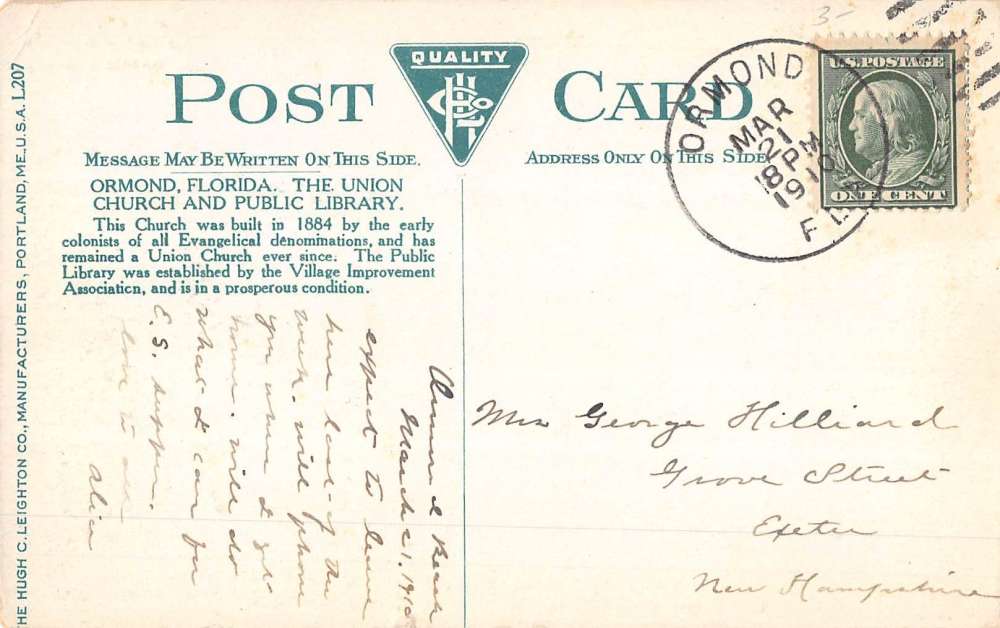 3-
POST CARD
QUALITY
MESSAGE MAY BE WRITTEN ON THIS SIDE.
ADDRESS ONLY ON THIS SIDE
ORMOND, FLORIDA. THE UNION
CHURCH AND PUBLIC LIBRARY.
This Church was built in 1884 by the early
colonists of all Evangelical denominations, and has
remained a Union Church ever since. The Public
Library was established by the Village Improvement
Association, and is in a prosperous condition.
HE HUGH C. LEIGHTON CO., MANUFACTURERS, PORTLAND, ME., U.S.A. L207
ORMOND
MAR
21
8 PM
1910
FLA
U.S. POSTAGE
ONE CENT
Ormond Beach
March 21. 1910
expect to leave
here last of the
week. will phone
you when I get
home. will do
what I can for
E.S. supper.
love to all
Alice
Mrs George Hilliard
Grove Street
Exeter
New Hampshire